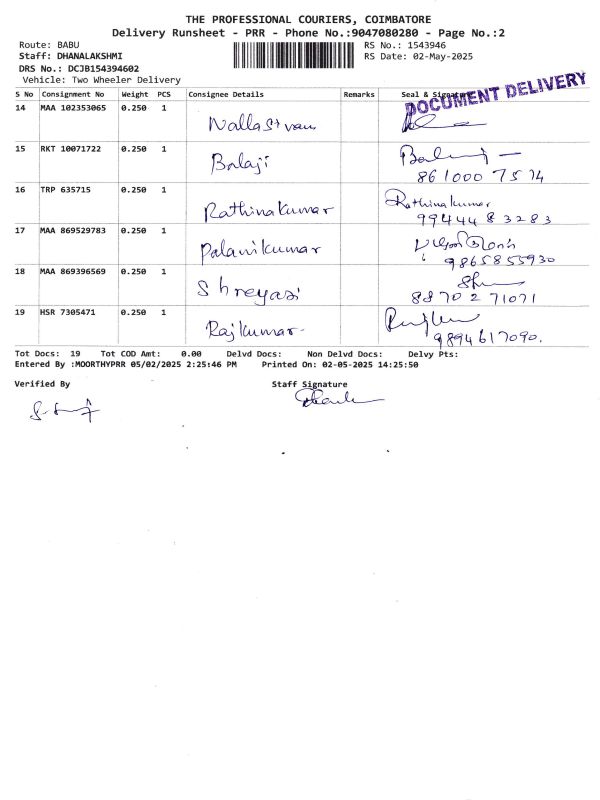 THE PROFESSIONAL COURIERS, COIMBATORE
Delivery Runsheet - PRR - Phone No.:9047080280 - Page No.:2
Route: BABU RS No.: 1543946
Staff: DHANALAKSHMI RS Date: 02-May-2025
DRS No.: DCJB154394602
Vehicle: Two Wheeler Delivery
DOCUMENT DELIVERY
S No Consignment No Weight PCS Consignee Details Remarks Seal & Signature
14 MAA 102353065 0.250 1
15 RKT 10071722 0.250 1 Balaji
861000 7514
16 TRP 635715 0.250 1 Rathinakumar Rathinakumar
99444 83283
17 MAA 869529783 0.250 1 Palanikumar
9865855930
18 MAA 869396569 0.250 1 Shreyasi
88702 71071
19 HSR 7305471 0.250 1 Rajkumar
9894617090.
Tot Docs: 19 Tot COD Amt: 0.00 Delvd Docs: Non Delvd Docs: Delvy Pts:
Entered By :MOORTHYPRR 05/02/2025 2:25:46 PM Printed On: 02-05-2025 14:25:50
Verified By Staff Signature